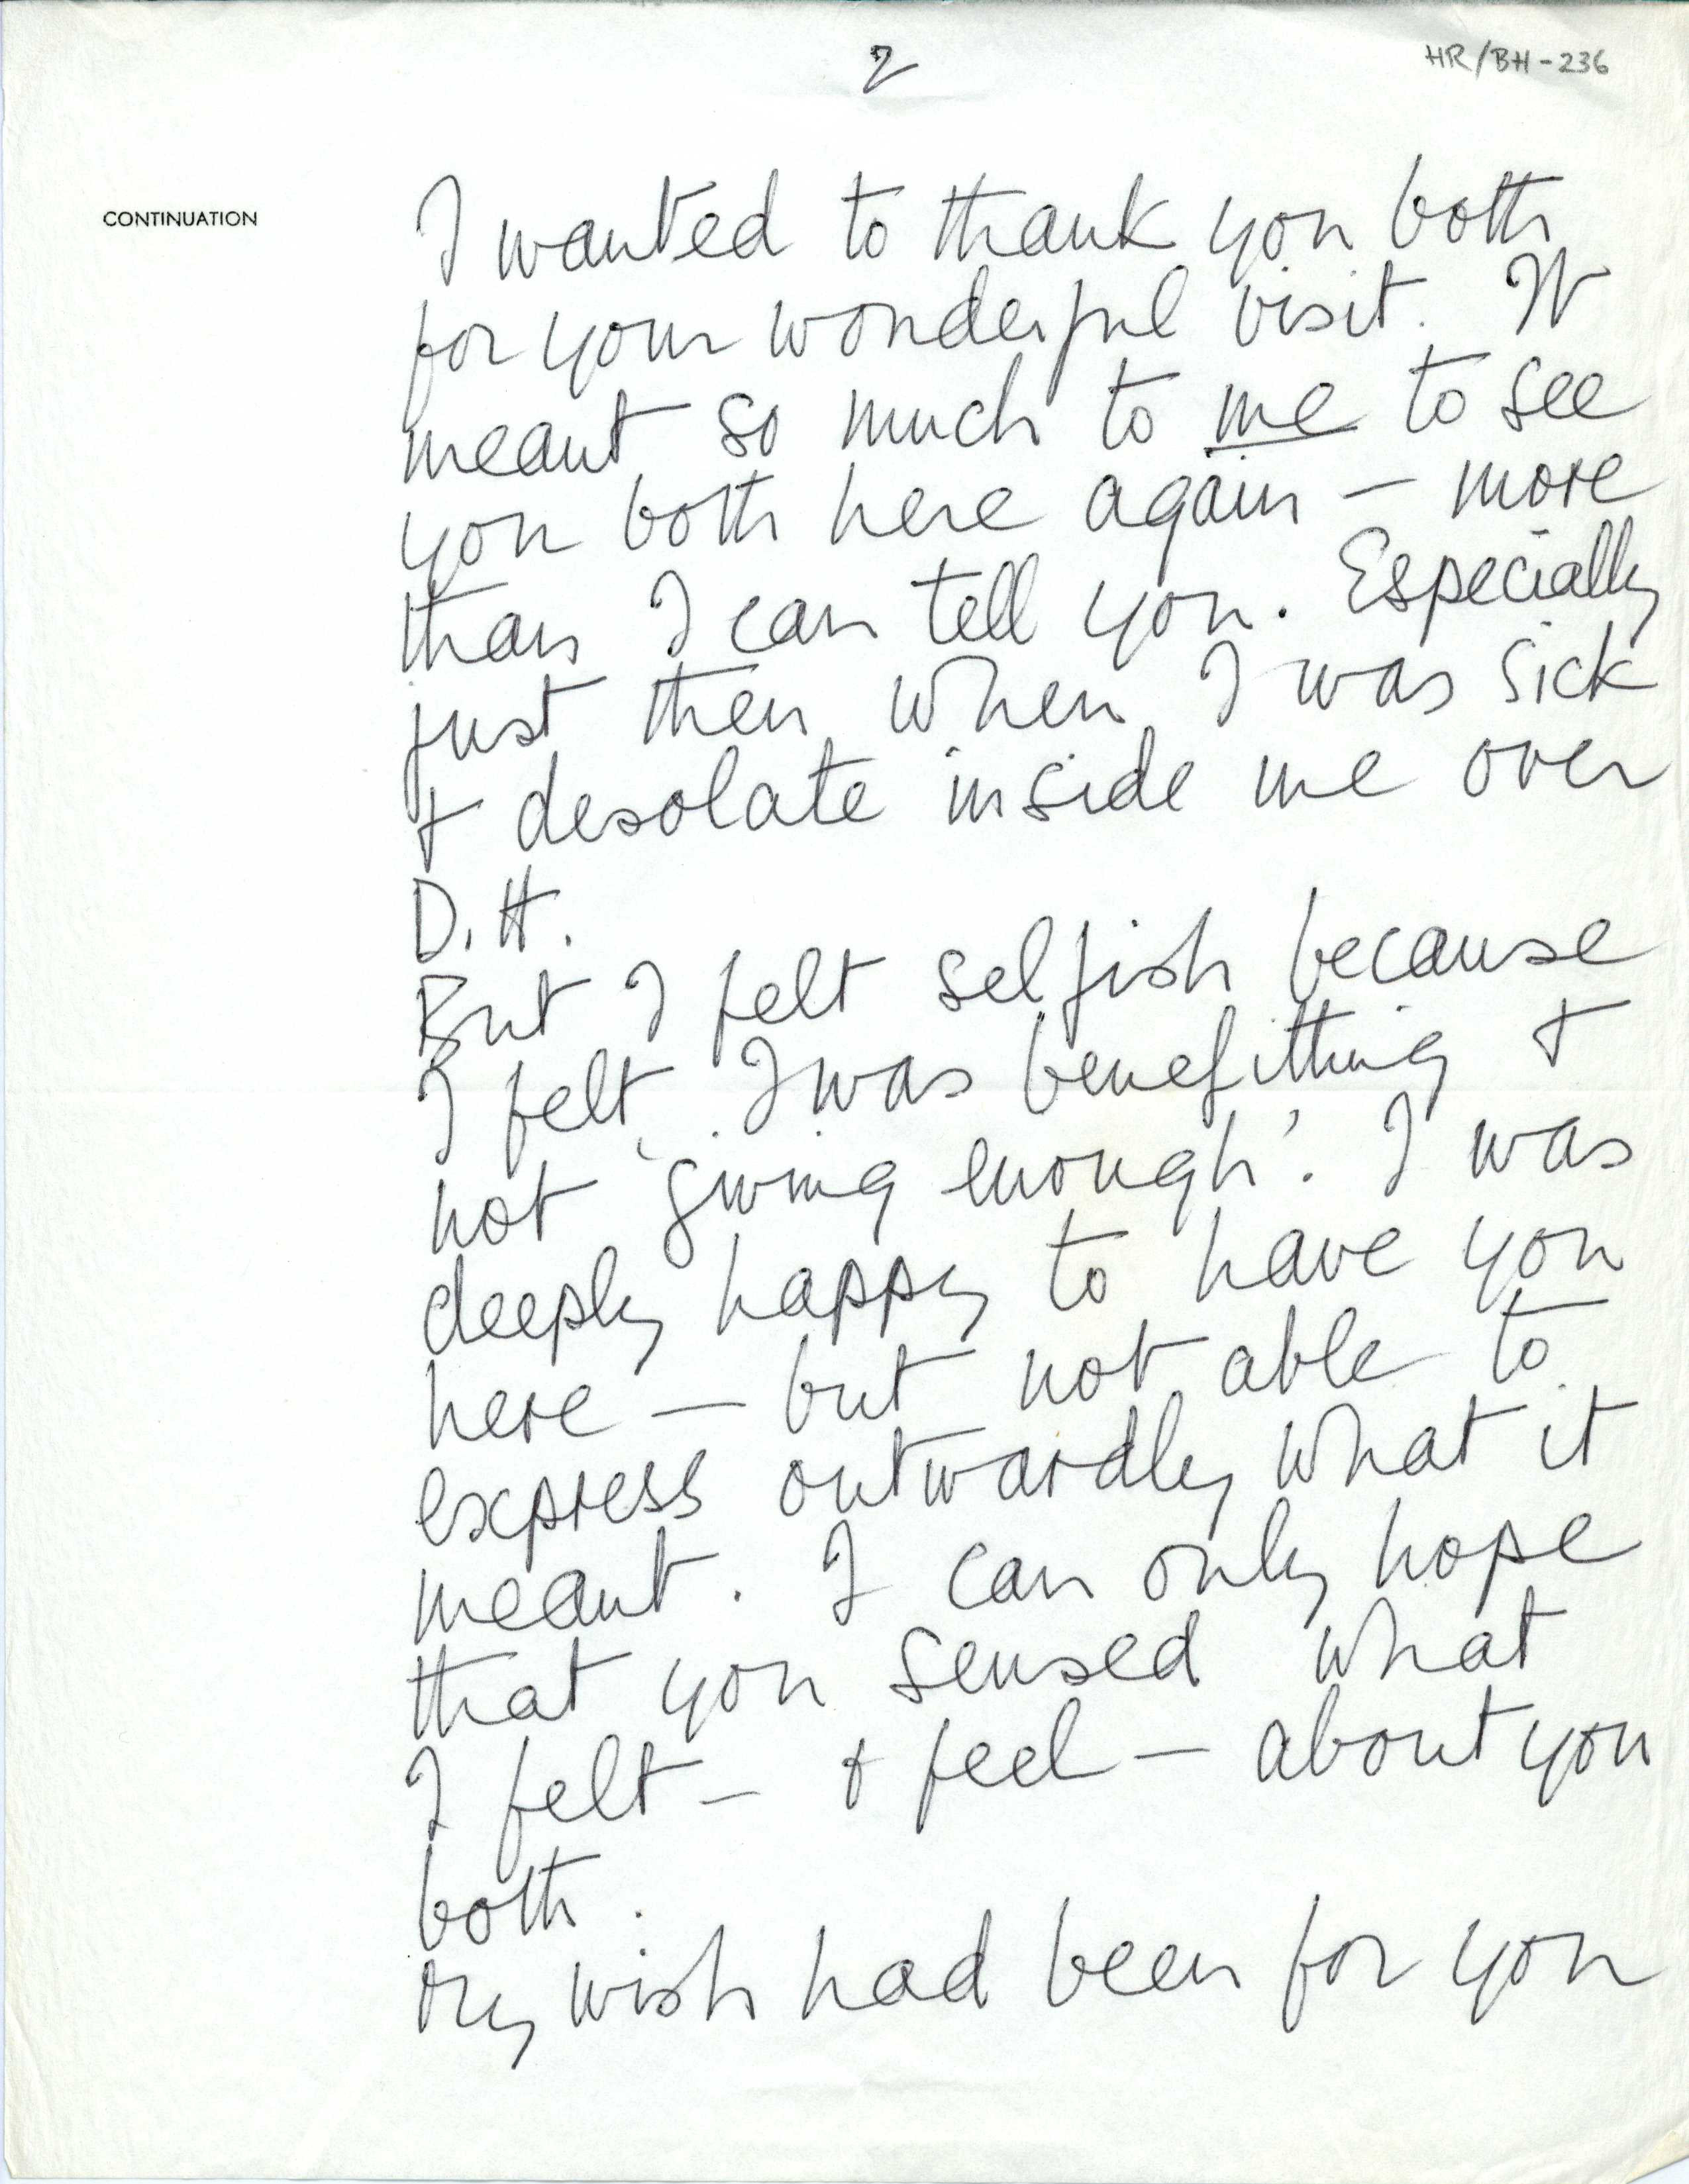 2
HR/BH-236
CONTINUATION
I wanted to thank you both
for your wonderful visit. It
meant so much to me to see
you both here again – more
than I can tell you. Especially
just then when I was sick
+ desolate inside me over
D.H.
But I felt selfish because
I felt I was benefitting +
not 'giving enough'. I was
deeply happy to have you
here – but not able to
express outwardly what it
meant. I can only hope
that you sensed what
I felt – + feel – about you
both.
My wish had been for you